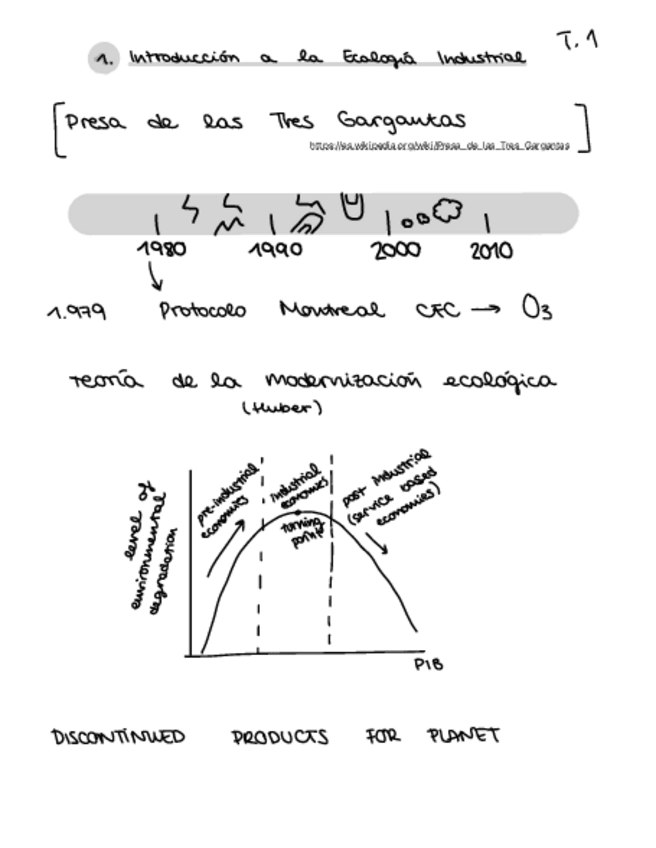 T.1
1. Introducción a la Ecología Industrial
[Presa de las Tres Gargantas]
https://es.wikipedia.org/wiki/Presa_de_las_Tres_Gargantas
1980 1990 2000 2010
1.979 Protocolo Montreal CFC → O3
teoría de la modernización ecológica
(Huber)
level of
environmental
degradation
pre-industrial
economies
industrial
economies
turning
point
post industrial
(service based
economies)
PIB
DISCONTINUED PRODUCTS FOR PLANET